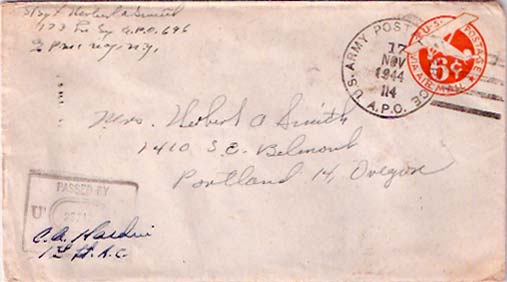 S/Sgt Herbert A Smith
173 A.P.O. 696
% P.M. N.Y. N.Y.
U.S. ARMY POSTAL
17
NOV
1944
114
A.P.O.
U.S. POSTAGE
6¢
VIA AIR MAIL
Mrs. Herbert A Smith
1410 S.E. Belmont
Portland 14, Oregon
PASSED BY
U
C.A.
1st Lt. A.C.